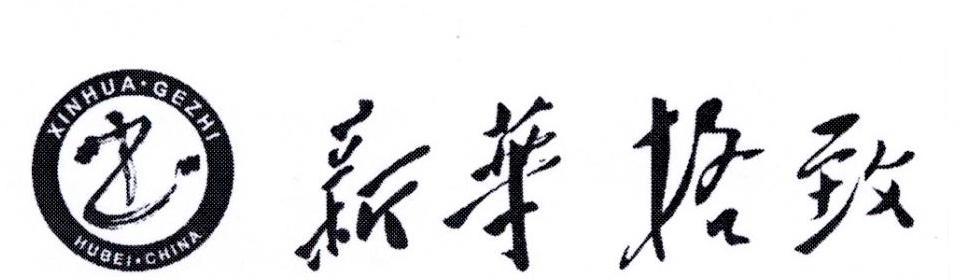 XINHUA·GEZHI
HUBEI·CHINA
新華格致